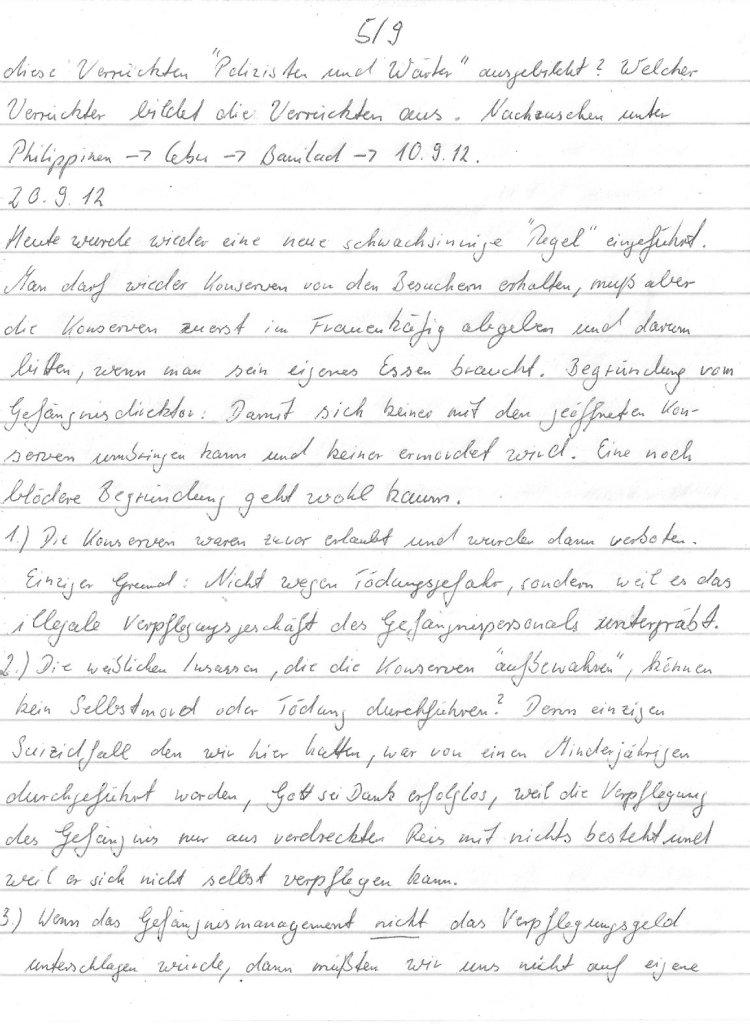 5/9
diese Verrückten "Polizisten und Wärter" ausgebildet? Welcher
Verrückter bildet die Verrückten aus. Nachzusehen unter
Philippinen -> Cebu -> Banilad -> 10.9.12.
20.9.12
Heute wurde wieder eine neue schwachsinnige "Regel" eingeführt.
Man darf wieder Konserven von den Besuchern erhalten, muß aber
die Konserven zuerst im Frauenkäfig abgeben und darum
bitten, wenn man sein eigenes Essen braucht. Begründung vom
Gefängnisdirektor: Damit sich keiner mit den geöffneten Kon-
serven umbringen kann und keiner ermordet wird. Eine noch
blödere Begründung geht wohl kaum.
1.) Die Konserven waren zuvor erlaubt und wurden dann verboten.
Einziger Grund: Nicht wegen Tödungsgefahr, sondern weil er das
illegale Verpflegungsgeschäft des Gefängnispersonals untergräbt.
2.) Die weiblichen Insassen, die die Konserven "aufbewahren", können
kein Selbstmord oder Tödung durchführen? Denn einzigen
Suizidfall den wir hier hatten, war von einen Minderjährigen
durchgeführt worden, Gott sei Dank erfolglos, weil die Verpflegung
des Gefängnis nur aus verdreckten Reis mit nichts besteht und
weil er sich nicht selbst verpflegen kann.
3.) Wenn das Gefängnismanagement nicht das Verpflegungsgeld
unterschlagen würde, dann müßten wir uns nicht auf eigene